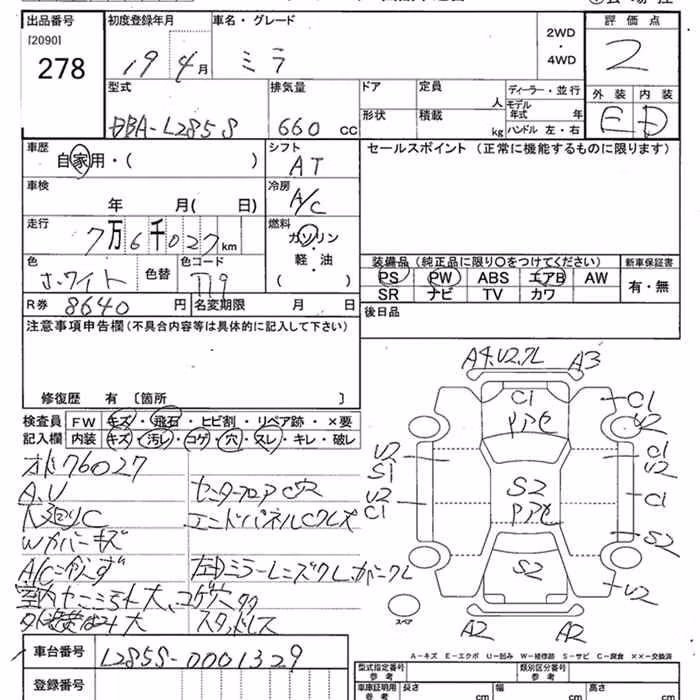 出品番号
[2090]
278
初度登録年月
19 4月
車名・グレード
ミラ
2WD
・
4WD
評価点
2
外装 内装
E D
型式
DBA-L285S
排気量
660 cc
ドア
定員
人
形状
積載
kg
ディーラー・並行
モデル
年式 年
ハンドル 左・右
車歴
自家用・( )
シフト
AT
セールスポイント (正常に機能するものに限ります)
車検
年 月( 日)
冷房
A/C
走行
7万6千027km
燃料
ガソリン
・
軽・油
( )
色
ホワイト
色替
色コード
T19
装備品 (純正品に限り○をつけてください)
PS PW ABS エアB AW
SR ナビ TV カワ
新車保証書
有・無
R券 8640 円
名変期限 月 日
後日品
注意事項申告欄(不具合内容等は具体的に記入して下さい)
修復歴 有 [箇所 ]
検査員
記入欄
FW キズ・飛石・ヒビ割・リペア跡・×要
内装 キズ・汚レ・コゲ・穴・スレ・キレ・破レ
76027
A.U
センターフロアC穴
C
エンドパネルCクレズ
Wカバーキズ
A/C
左Dミラーレンズワレ.カバーワレ
室内 大、コゲ穴多
大
スタッドレス
車台番号 L285S-0001329
登録番号
A4.U2.ワレ A3
C1
C1
U2
U2
S1
C1
U2
U2
C1
C1
S2
S2
S2
U2
A2 A2
スペア
A-キズ E-エクボ U-凹み W-補修跡 S-サビ C-腐食 ××-交換済
型式指定番号
参考
類別区分番号
参考
車庫証明用
参考
長さ cm
幅 cm
高さ cm